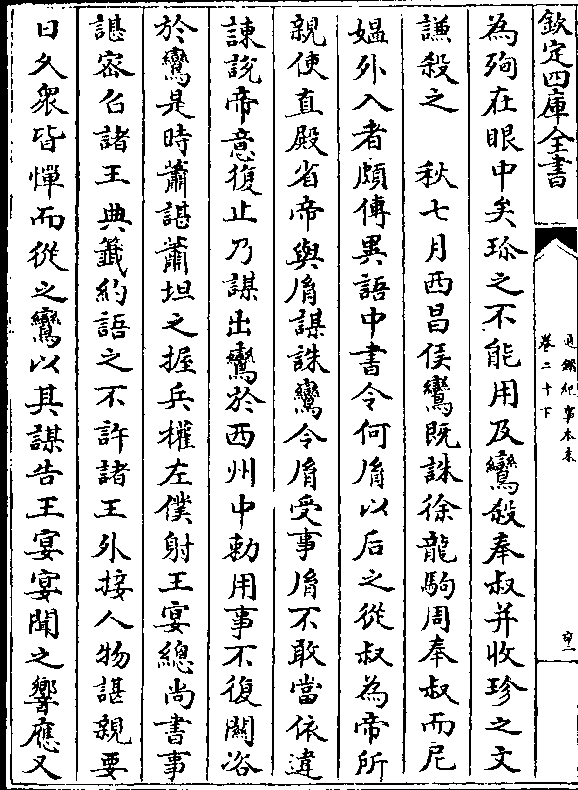 欽定四庫全書
通鑑紀事本末
卷二十下
為殉在眼中矣珍之不能用及鸞殺奉叔并收珍之文
謙殺之　秋七月西昌侯鸞既誅徐龍駒周奉叔而尼
媪外入者頗傳異語中書令何𦙍以后之從叔為帝所
親使直殿省帝與𦙍謀誅鸞令𦙍受事𦙍不敢當依違
諫說帝意復止乃謀出鸞於西州中勅用事不復關咨
於鸞是時蕭諶蕭坦之握兵權左僕射王晏總尚書事
諶密召諸王典籖約語之不許諸王外接人物諶親要
日久衆皆憚而從之鸞以其謀告王晏晏聞之響應又